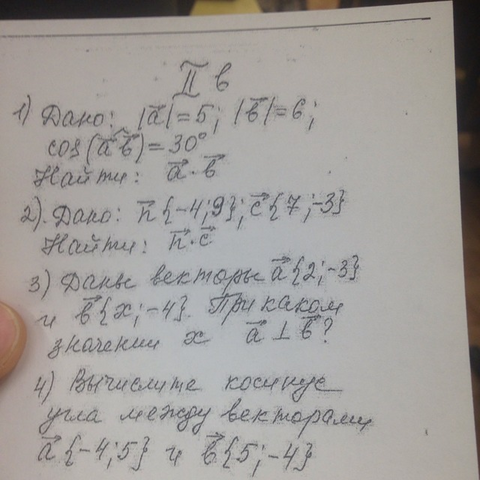 II в
1) Дано: |a⃗|=5; |b⃗|=6;
cos(a⃗ b⃗)=30°
Найти: a⃗·b⃗
2). Дано: n⃗{-4;9}; c⃗{7;-3}
Найти: n⃗·c⃗
3) Даны векторы a⃗{2;-3}
и b⃗{x;-4}. При каком
значении x a⃗⊥b⃗?
4) Вычислите косинус
угла между векторами
a⃗{-4;5} и b⃗{5;-4}